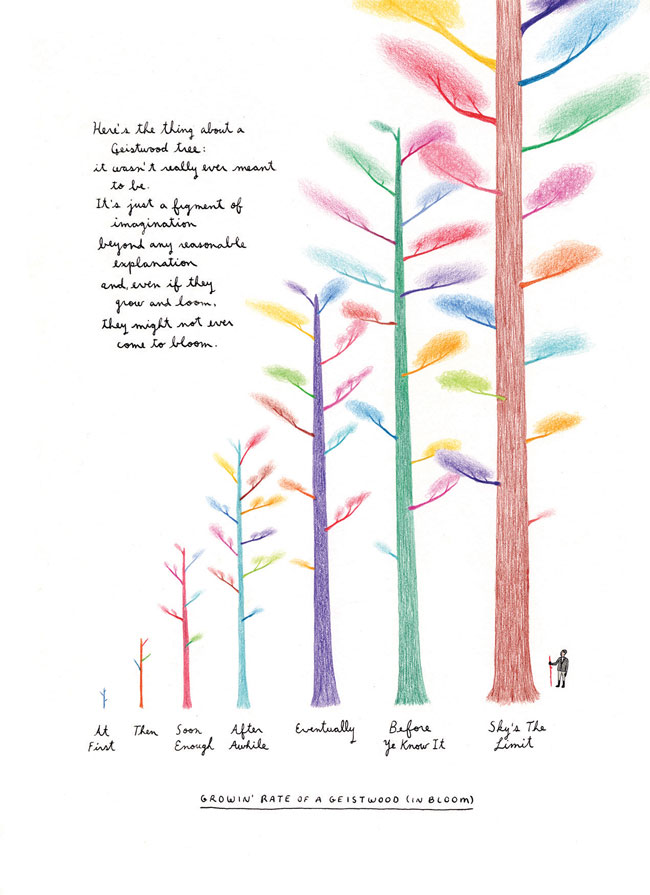 Here's the thing about a
Geistwood tree:
it wasn't really ever meant
to be.
It's just a figment of
imagination
beyond any reasonable
explanation
and, even if they
grow and loom,
they might not ever
come to bloom.
At First
Then
Soon Enough
After Awhile
Eventually
Before Ye Know It
Sky's The Limit
GROWIN' RATE OF A GEISTWOOD (IN BLOOM)